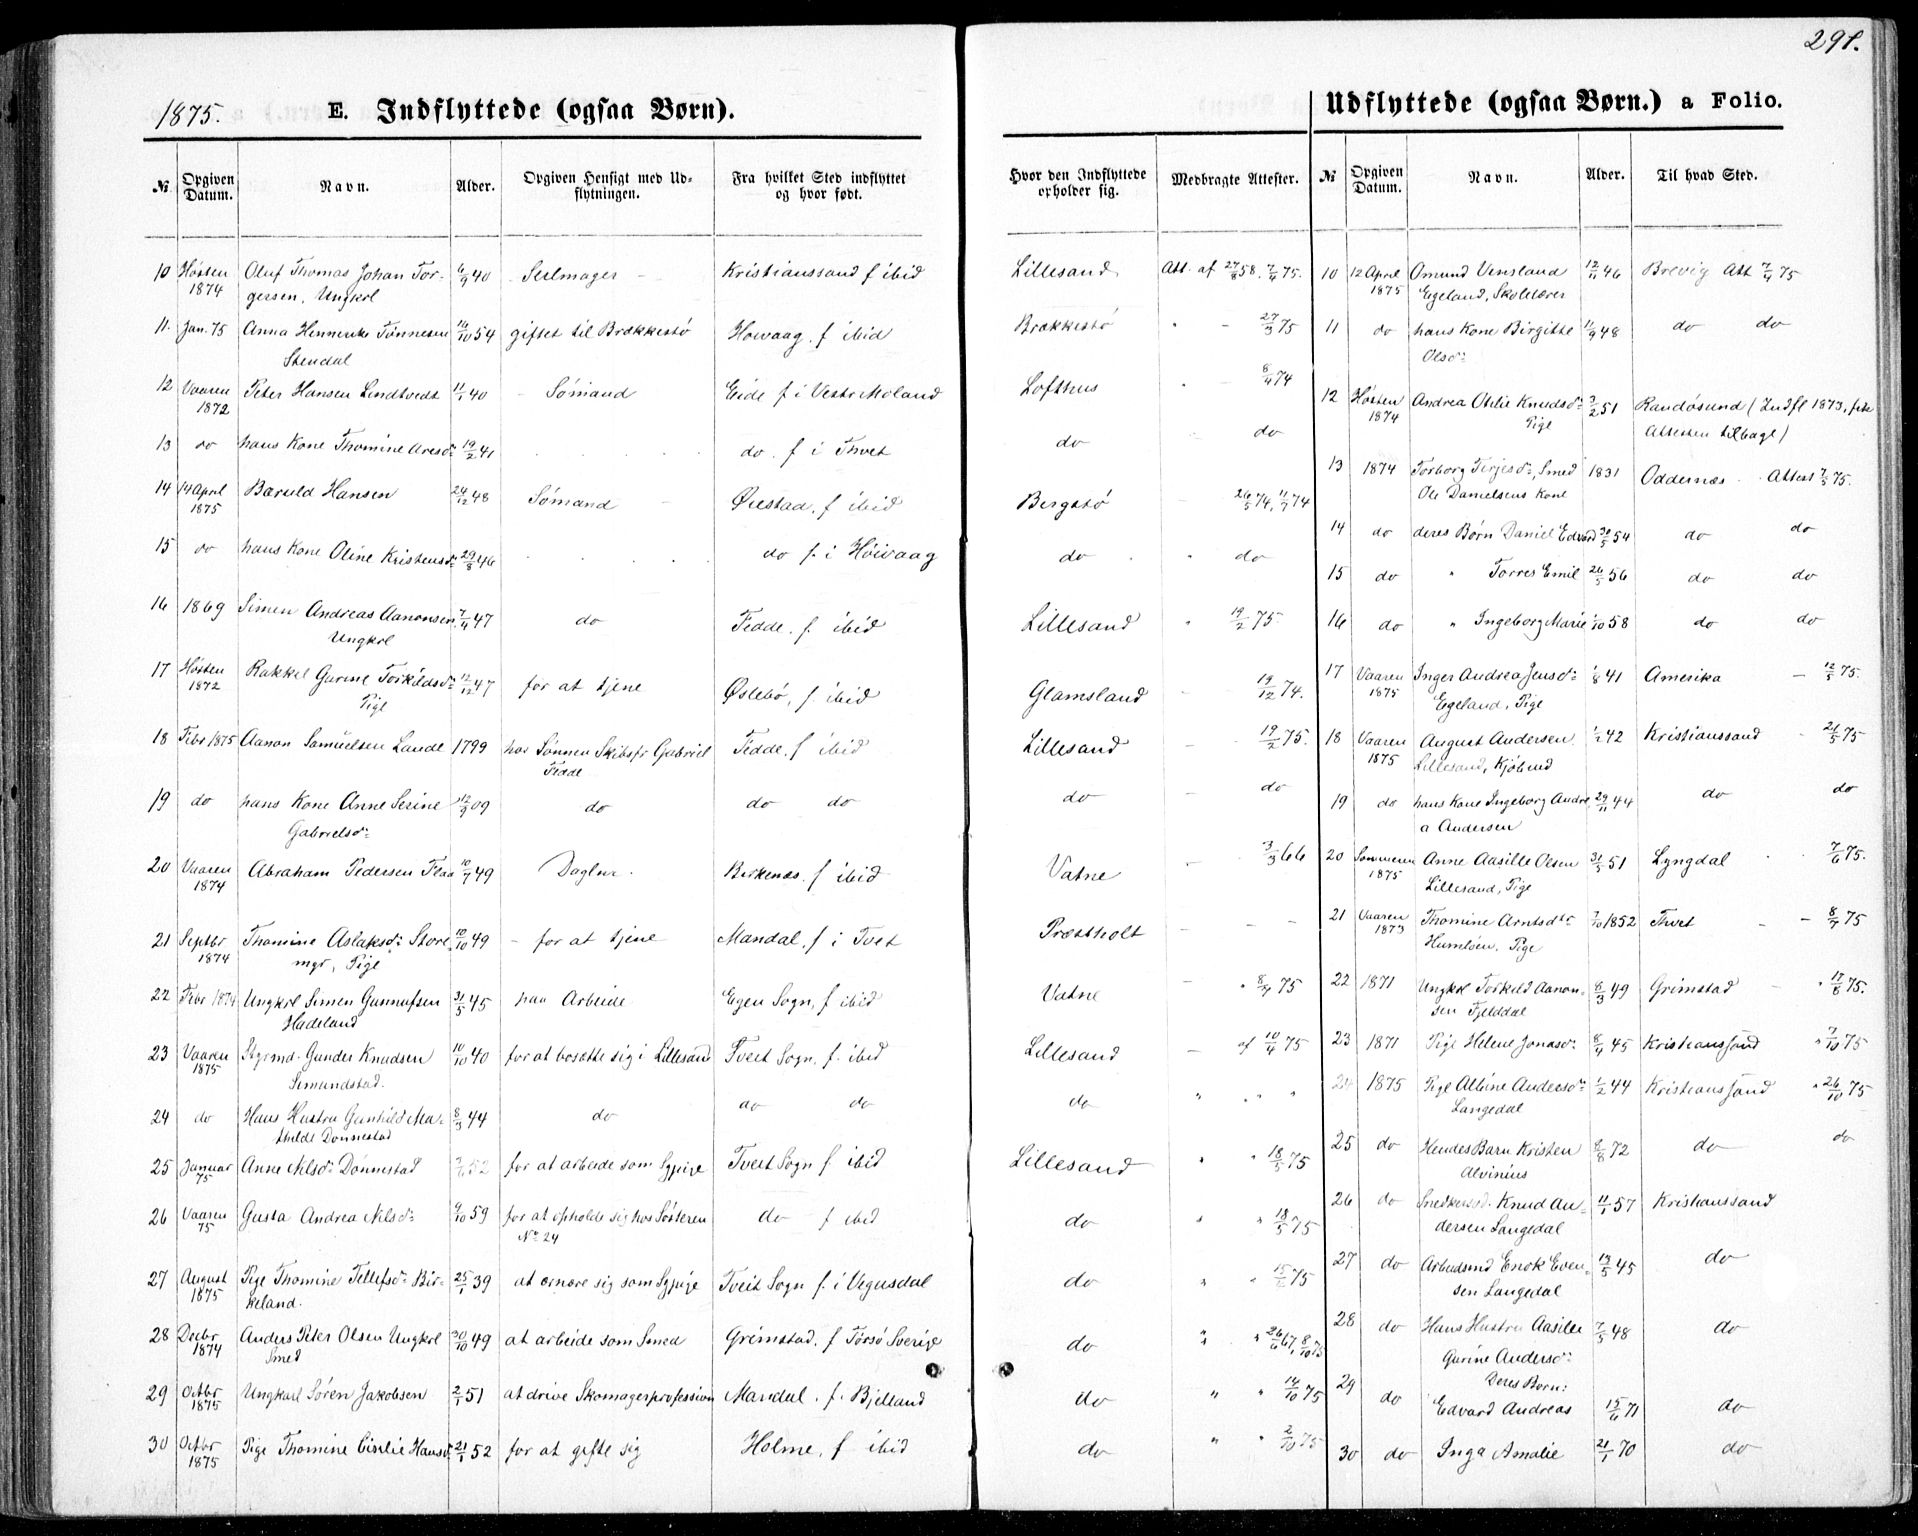 291.
1875.
E. Indflyttede (ogsaa Børn).
№ Opgiven Datum. Navn. Alder. Opgiven Hensigt med Udflytningen. Fra hvilket Sted indflyttet og hvor født. Hvor den Indflyttede opholder sig. Medbragte Attester.
10 Høsten 1874 Oluf Thomas Johan Torgersen, Ungkrl 6/9 40 Seilmager Kristianssand f ibid Lillesand Att. af 27/8 58. 7/4 75.
11. Jan. 75 Anna Hennenke Tønnesen Stendal 14/10 54 giftet til Brækkestø Høivaag, f ibid Brækkestø " - 27/3 75
12 Vaaren 1872 Peter Hansen Lindtvedt 11/1 40 - Sømand Eide f i Vestr Moland Lofthus " - 8/4 74
13 do hans Kone Thomine Aresd: 19/2 41 do. f i Thvet do do
14 14 April 1875 Baruld Hansen 24/12 48 Sømand Øiestad, f ibid Bergstø 26/5 74, 11/7 74
15 do hans Kone Oline Kristensd: 29/8 46 do f. i Høivaag do " do
16 1869 Simen Andreas Aanonsen Ungkrl 7/4 47 do Fedde. f. ibid Lillesand " 19/2 75.
17 Høsten 1872 Rakkel Gurine Torkildsd: Pige 12/12 47 for at tjene Øslebø, f. ibid Glamsland - 19/12 74.
18 Febr 1875 Aanon Samuelsen Lande 1799 hos Sønnen Skibsfr Gabriel Fedde Fedde. f ibid Lillesand - 19/2 75.
19 do hans Kone Anne Serine Gabrielsd: 12/9 09 do do do do - do
20 Vaaren 1874 Abraham Pedersen Flaa 10/7 49 Dagleie. Birkenæs. f ibid Vatne - 3/3 66
21 Septbr 1874 Thomine Aslaksd: Storemyr, Pige 10/10 49 - for at tjene Mandal, f i Tvet Præstholt - - -
22 Febr 1874 Ungkrl Simen Gunnufsen Hadeland 31/5 45 paa Arbeide Egen Sogn, f ibid Vatne - " 8/4 75
23 Vaaren 1875 Styrmd. Gunder Knudsen Simundstad. 10/10 40 for at bosætte sig i Lillesand Tveit Sogn, f. ibid Lillesand - af 10/4 75
24 do Hans Hustru Gunhild Mathilde Dønnestad 8/3 44 do do do do " " " "
25 Januar 75 Anne Nilsd: Dønnestad 52 for at arbeide som Sypige Tveit Sogn f ibid Lillesand " " 18/5 75
26 Vaaren 75 Gusta Andrea Nilsd: 9/10 59 for at opholde sig hos Søsteren No 24 do f ibid do " " 18/5 75
27 August 1875 Pige Thomine Tellefsd: Birkeland. 25/1 39 at ernære sig som Sypige Tveit Sogn f. i Vegusdal do " " 75
28 Decbr 1874 Anders Peter Olsen Ungkrl Smed 30/10 49 at arbeide som Smed Grimstad. f Torsö Sverige do " " 26/6 67, 8/10 75
29 Octbr 1875 Ungkarl Søren Jakobsen 2/1 51 at drive Skomagerprofession Mandal. f. Bjelland do " " 14/10 75
30 Octbr 1875 Pige Thomine Cicilie Hansd: 21/1 52 for at gifte sig Holme, f ibid do " " 2/10 75
Udflyttede (ogsaa Børn.) a Folio.
№ Opgiven Datum. Navn. Alder. Til hvad Sted.
10 12 April 1875 Omund Vensland Egeland, Skolelærer 12/11 46 Brevig Att 7/4 75
11 do hans Kone Birgitte Olsd: 11/9 48 do do
12 Høsten 1874 Andrea Otilie Knudsd: Pige 3/2 51 Randøsund (Indfl 1873, fik Attesten tilbage)
13 1874 Torborg Terjesd:, Smed Ole Danielsens Kone 1831 Oddernæs. Attest 7/5 75.
14 do deres Børn Daniel Edvard 30/5 54 do do
15 do " Torres Emil 26/5 56 do do
16 do " Ingeborg Marie 1/10 58 do do
17 Vaaren 1875 Inger Andrea Jensd: Egeland, Pige 1/8 41 Amerika - 12/5 75.
18 Vaaren 1875 August Andersen Lillesand, Kjøbmd 1/2 42 Kristianssand - 21/5 75
19 do hans Kone Ingeborg Andrea Andersen 29/11 44 do do
20 Sommeren 1875 Anne Aasille Olsen Lillesand, Pige 31/5 51 Lyngdal 7/6 75.
21 Vaaren 1873 Thomine Arntsdtr Humløen. Pige 7/10 1852 Thvet - - 8/7 75
22 1871 Ungkrl Torkild Aanonsen Fjelddal 8/3 49 Grimstad - " 17/8 75.
23 1871 Pige Helene Jonasd: 8/4 45 Kristianssand " 7/10 75
24 1875 Pige Albine Andersd: Langedal 1/2 44 Kristianssand " 26/10 75
25 do Hendes Barn Kristen Alvinius 8/8 72 do do
26 do Snedkersv. Knud Andersen Langedal 11/1 57 Kristianssand
27 do Arbeidsmd Enok Evensen Langedal 13/5 45 do
28 do Hans Hustru Aasille Gurine Andersd: 7/5 48 do
29 do Deres Børn: Edvard Andreas 15/6 71 do
30 do Inga Amalie 21/1 70 do